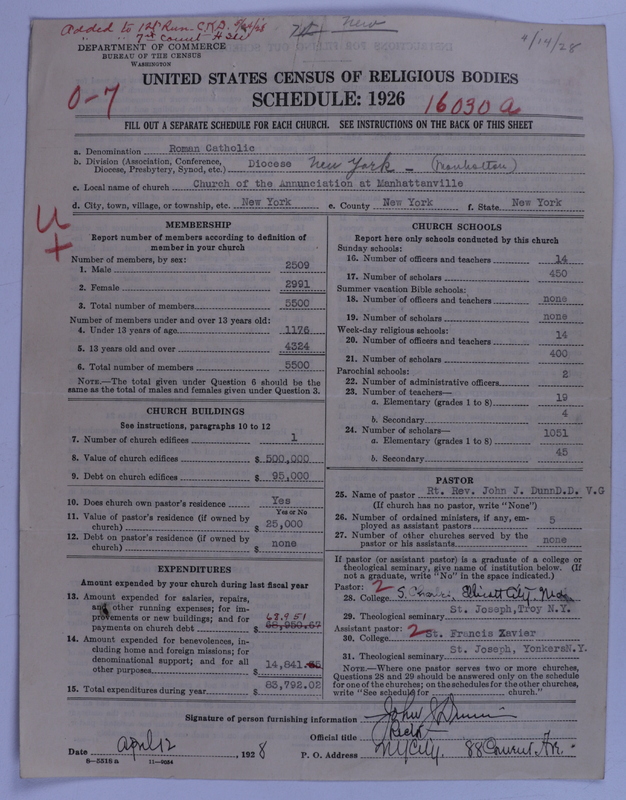 Added to 1st Run C.K.D. 9/24/28
" " 7th Count - H Sec
7th New
4/14/28
DEPARTMENT OF COMMERCE
BUREAU OF THE CENSUS
WASHINGTON
UNITED STATES CENSUS OF RELIGIOUS BODIES
SCHEDULE: 1926
0-7
16030a
FILL OUT A SEPARATE SCHEDULE FOR EACH CHURCH. SEE INSTRUCTIONS ON THE BACK OF THIS SHEET
a. Denomination Roman Catholic
b. Division (Association, Conference, Diocese, Presbytery, Synod, etc.) Diocese New York - (Manhattan)
c. Local name of church Church of the Annunciation at Manhattanville
d. City, town, village, or township, etc. New York e. County New York f. State New York
U
+
MEMBERSHIP
Report number of members according to definition of
member in your church
Number of members, by sex:
1. Male 2509
2. Female 2991
3. Total number of members 5500
Number of members under and over 13 years old:
4. Under 13 years of age 1176
5. 13 years old and over 4324
6. Total number of members 5500
NOTE.—The total given under Question 6 should be the
same as the total of males and females given under Question 3.
CHURCH BUILDINGS
See instructions, paragraphs 10 to 12
7. Number of church edifices 1
8. Value of church edifices $ 500,000
9. Debt on church edifices $ 95,000
10. Does church own pastor's residence Yes
Yes or No
11. Value of pastor's residence (if owned by
church) $ 25,000
12. Debt on pastor's residence (if owned by
church) $ none
EXPENDITURES
Amount expended by your church during last fiscal year
13. Amount expended for salaries, repairs,
and other running expenses; for im-
provements or new buildings; and for
payments on church debt $ 68,951 68,950.67
14. Amount expended for benevolences, in-
cluding home and foreign missions; for
denominational support; and for all
other purposes $ 14,841.35
15. Total expenditures during year $ 83,792.02
CHURCH SCHOOLS
Report here only schools conducted by this church
Sunday schools:
16. Number of officers and teachers 14
17. Number of scholars 450
Summer vacation Bible schools:
18. Number of officers and teachers none
19. Number of scholars none
Week-day religious schools:
20. Number of officers and teachers 14
21. Number of scholars 400
Parochial schools:
22. Number of administrative officers 2
23. Number of teachers—
a. Elementary (grades 1 to 8) 19
b. Secondary 4
24. Number of scholars—
a. Elementary (grades 1 to 8) 1051
b. Secondary 45
PASTOR
25. Name of pastor Rt. Rev. John J. DunnD.D. V.G
(If church has no pastor, write "None")
26. Number of ordained ministers, if any, em-
ployed as assistant pastors 5
27. Number of other churches served by the
pastor or his assistants none
If pastor (or assistant pastor) is a graduate of a college or
theological seminary, give name of institution below. (If
not a graduate, write "No" in the space indicated.)
Pastor: 2
28. College S. Charles, Ellicott City,
29. Theological seminary St. Joseph,Troy N.Y.
Assistant pastor: 2
30. College St. Francis Xavier
31. Theological seminary St. Joseph, YonkersN.Y.
NOTE.—Where one pastor serves two or more churches,
Questions 28 and 29 should be answered only on the schedule
for one of the churches; on the schedules for the other churches,
write "See schedule for church."
Signature of person furnishing information John J. Dunn
Official title Rector
Date April 12, 1928 P. O. Address NY City. 88 Convent Av.
8-5518 a 11-9034